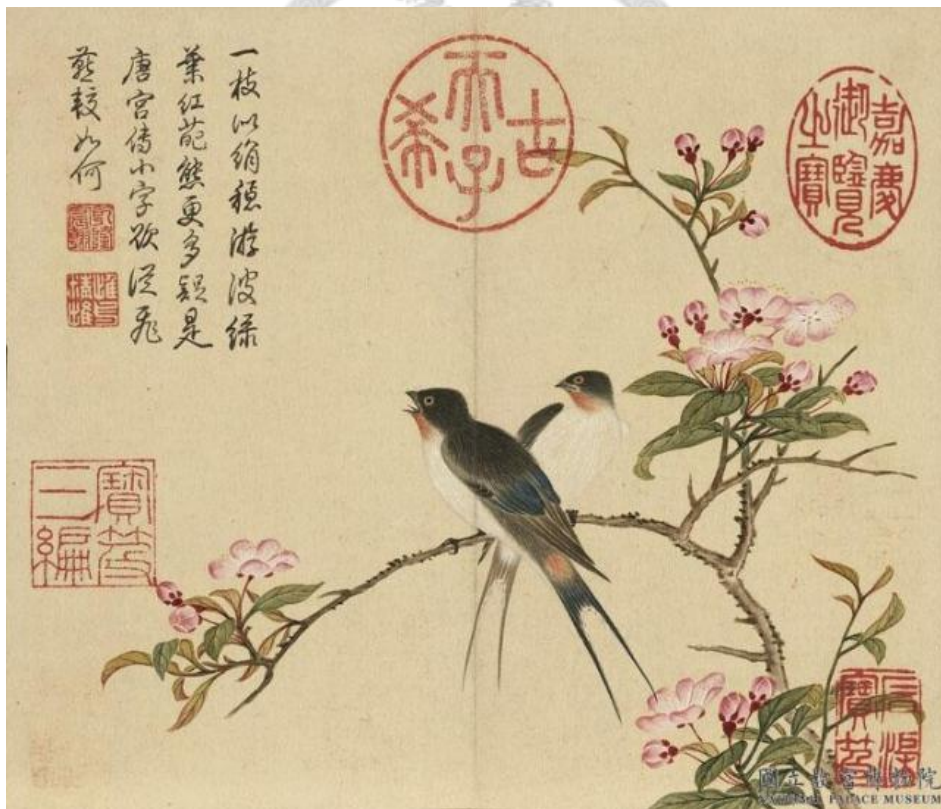 一枝穩游波綠
葉紅葩態更多疑是
唐宮傳小字欲從飛
燕較如何
古希天子
嘉慶御覽之寶
寶笈三編
石渠寶笈
國立故宮博物院
NATIONAL PALACE MUSEUM